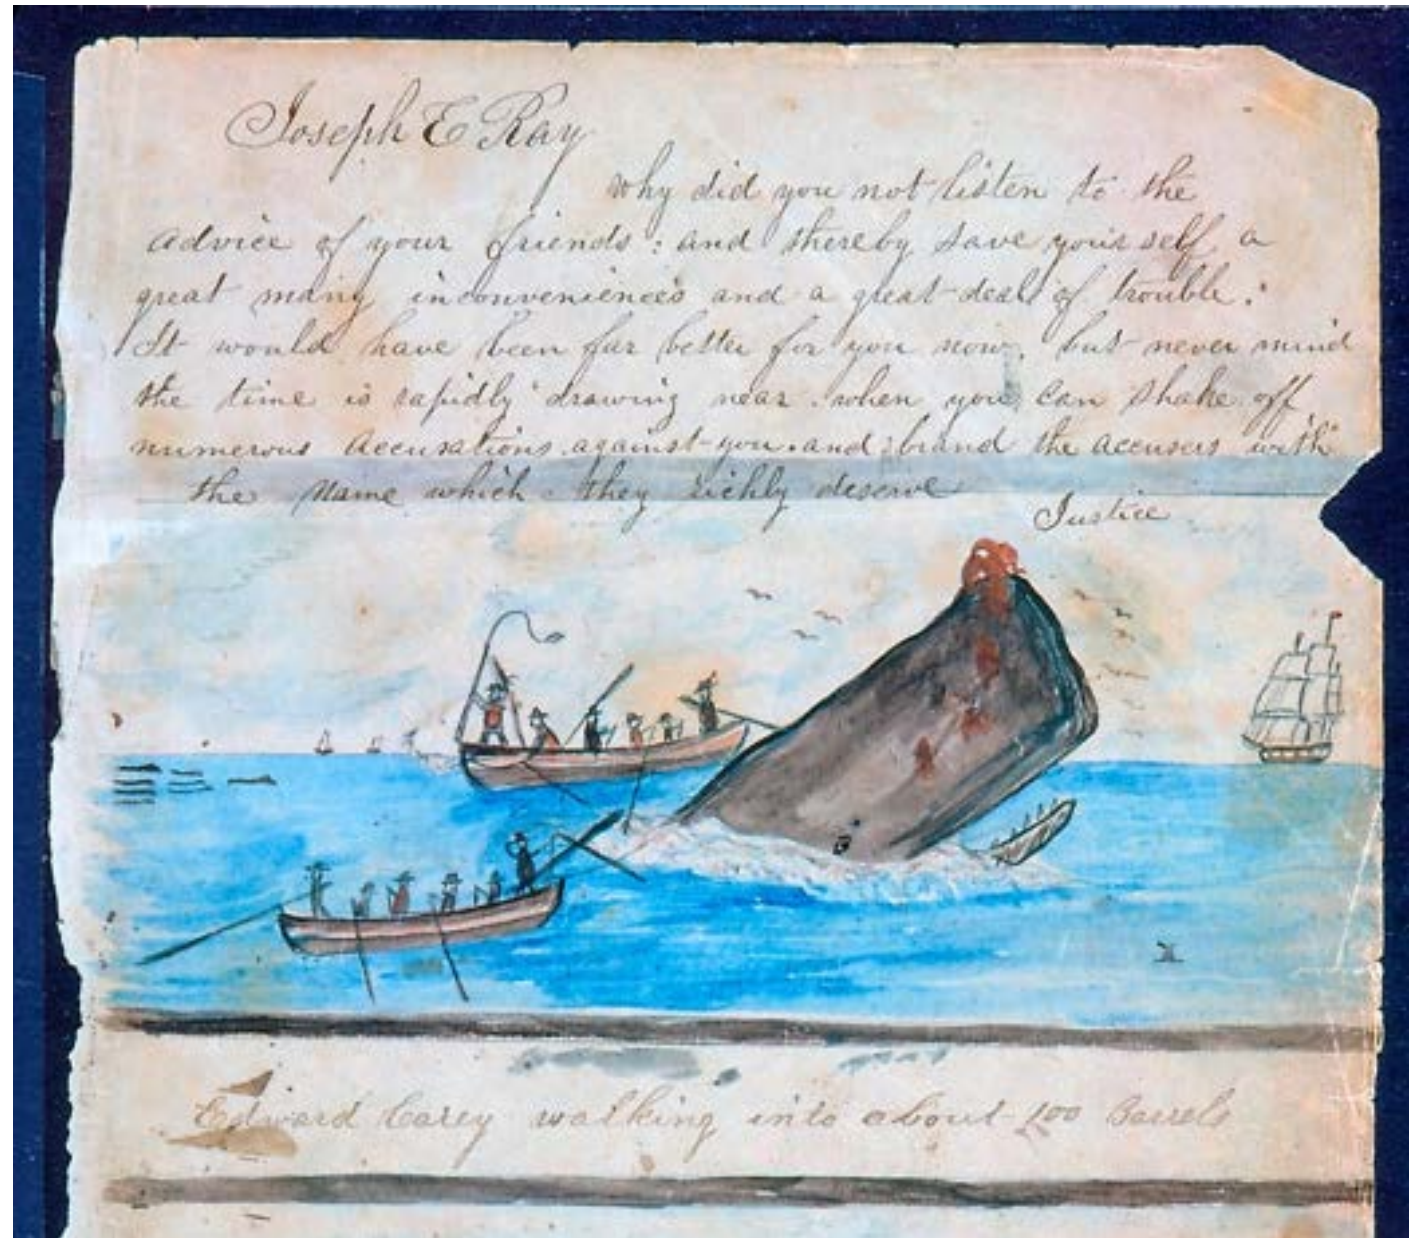 Joseph E Ray
Why did you not listen to the
advice of your friends : and thereby save your self a
great many inconveniences and a great deal of trouble :
It would have been far better for you now, but never mind
the time is rapidly drawing near when you can shake off
numerous accusations against you and brand the accusers with
the name which they richly deserve
Justice
Edward Carey walking into about 100 Barrels